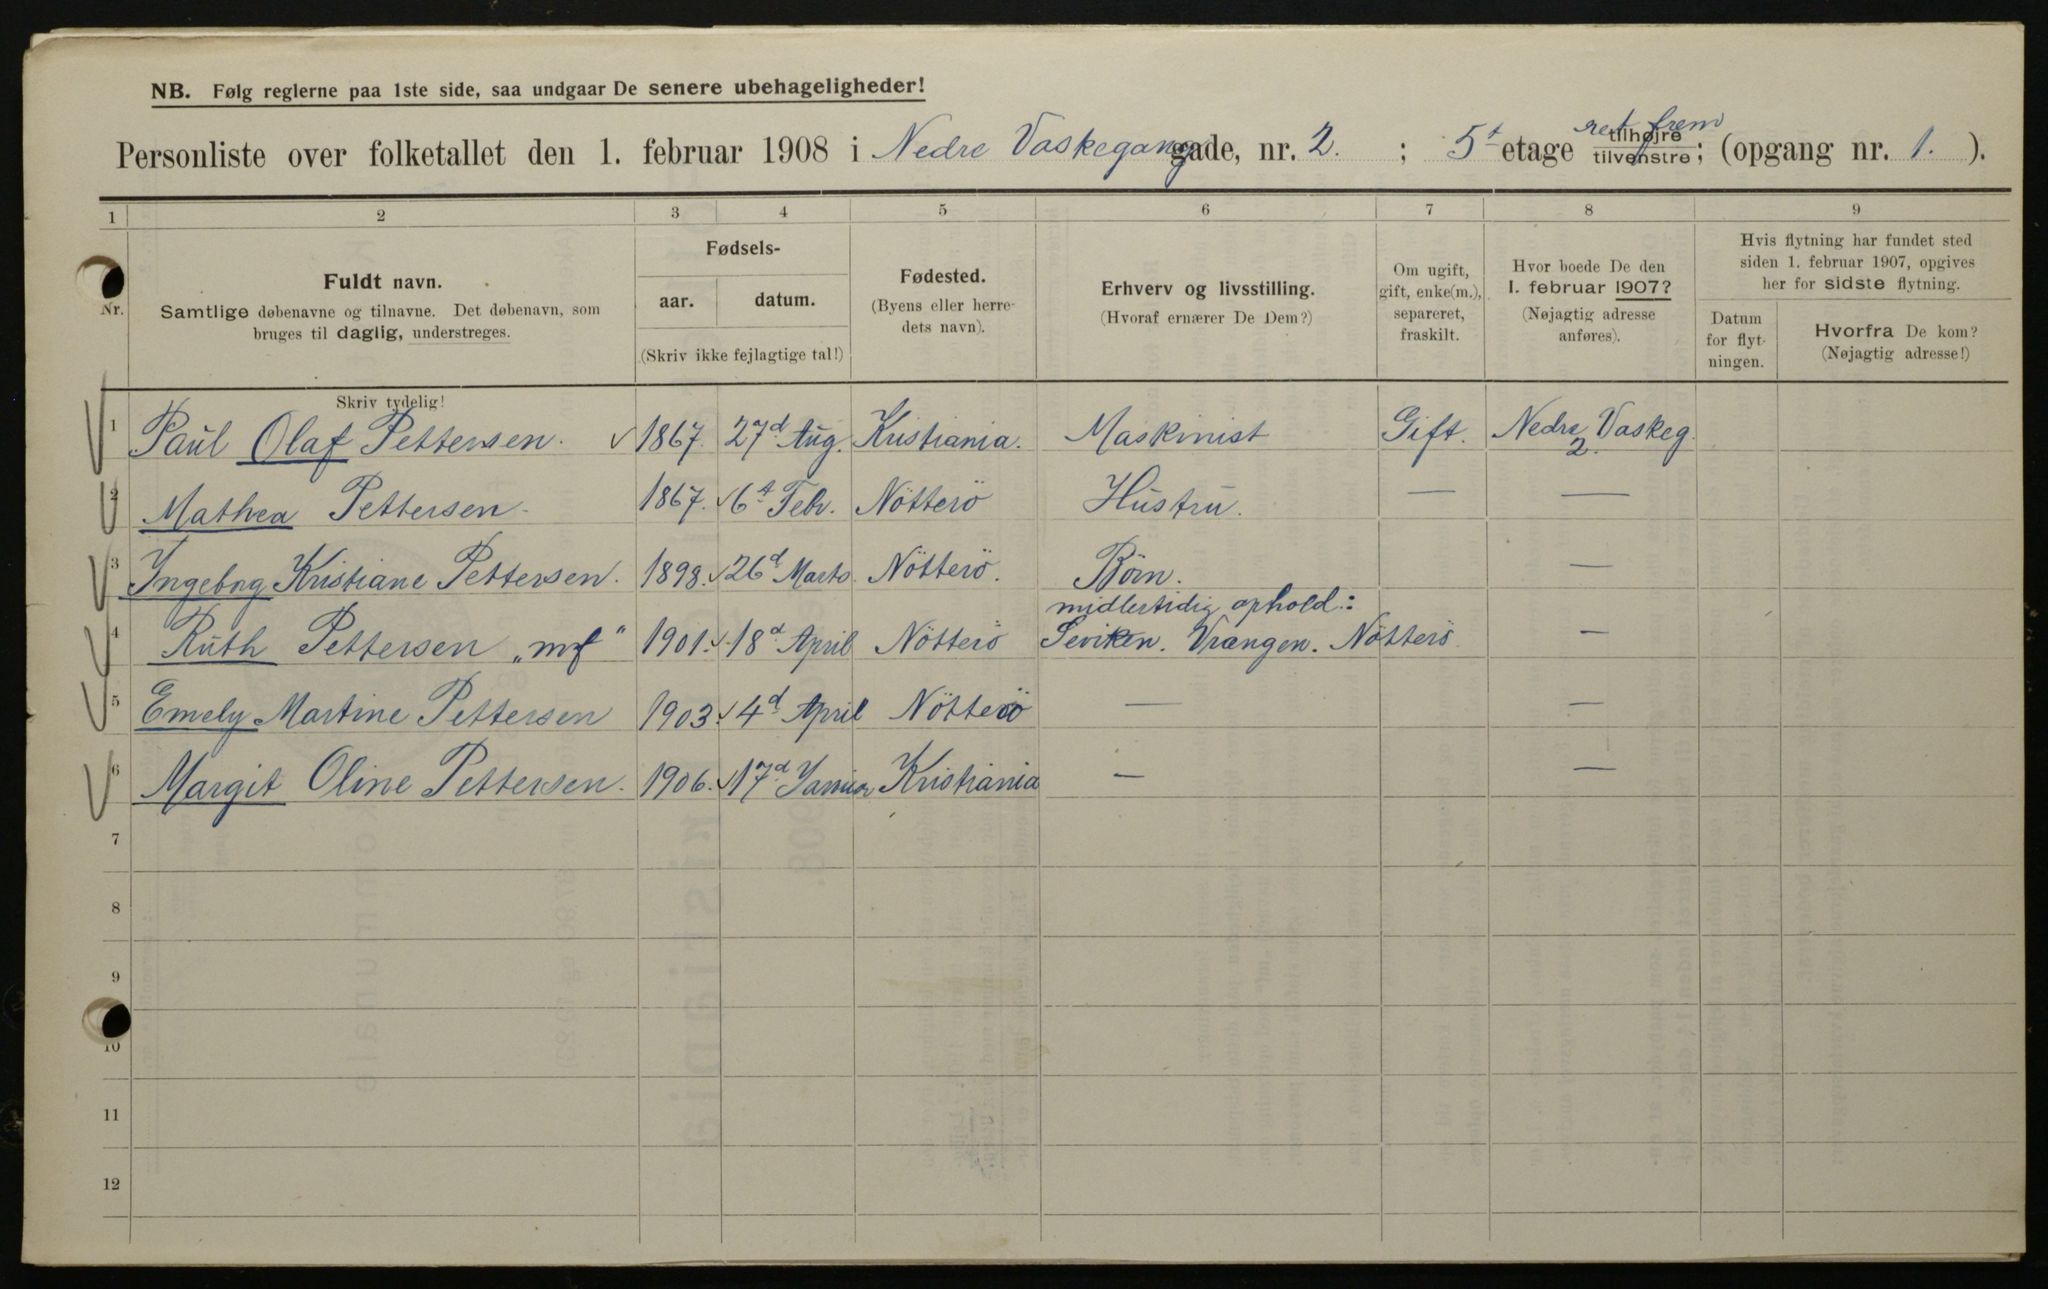 NB. Følg reglerne paa 1ste side, saa undgaar De senere ubehageligheder!
Personliste over folketallet den 1. februar 1908 i Nedre Vaskegang gade, nr. 2. ; 5t etage ret frem tilhøjre tilvenstre; (opgang nr. 1. ).
1 2 3 4 5 6 7 8 9
Nr.
Fuldt navn.
Samtlige døbenavne og tilnavne. Det døbenavn, som
bruges til daglig, understreges.
Skriv tydelig!
Fødsels-
aar. datum.
(Skriv ikke fejlagtige tal!)
Fødested.
(Byens eller herre-
dets navn).
Erhverv og livsstilling.
(Hvoraf ernærer De Dem?)
Om ugift,
gift, enke(m.),
separeret,
fraskilt.
Hvor boede De den
1. februar 1907?
(Nøjagtig adresse
anføres).
Hvis flytning har fundet sted
siden 1. februar 1907, opgives
her for sidste flytning.
Datum
for flyt-
ningen.
Hvorfra De kom?
(Nøjagtig adresse!)
1 Paul Olaf Pettersen. 1867. 27d Aug. Kristiania. Maskinist Gift. Nedre Vaskeg. 2.
2 Mathea Pettersen. 1867. 6t Febr. Nötterö Hustru. — —
3 Ingeborg Kristiane Pettersen. 1898. 26d Marts. Nötterö. Börn. —
midlertidig ophold:
4 Ruth Pettersen „mf“ 1901. 18d April Nötterö Seviken. Vrangen. Nötterö. —
5 Emely Martine Pettersen 1903. 4d April Nötterö — —
6 Margit Oline Pettersen. 1906. 17d Januar Kristiania — —
7
8
9
10
11
12